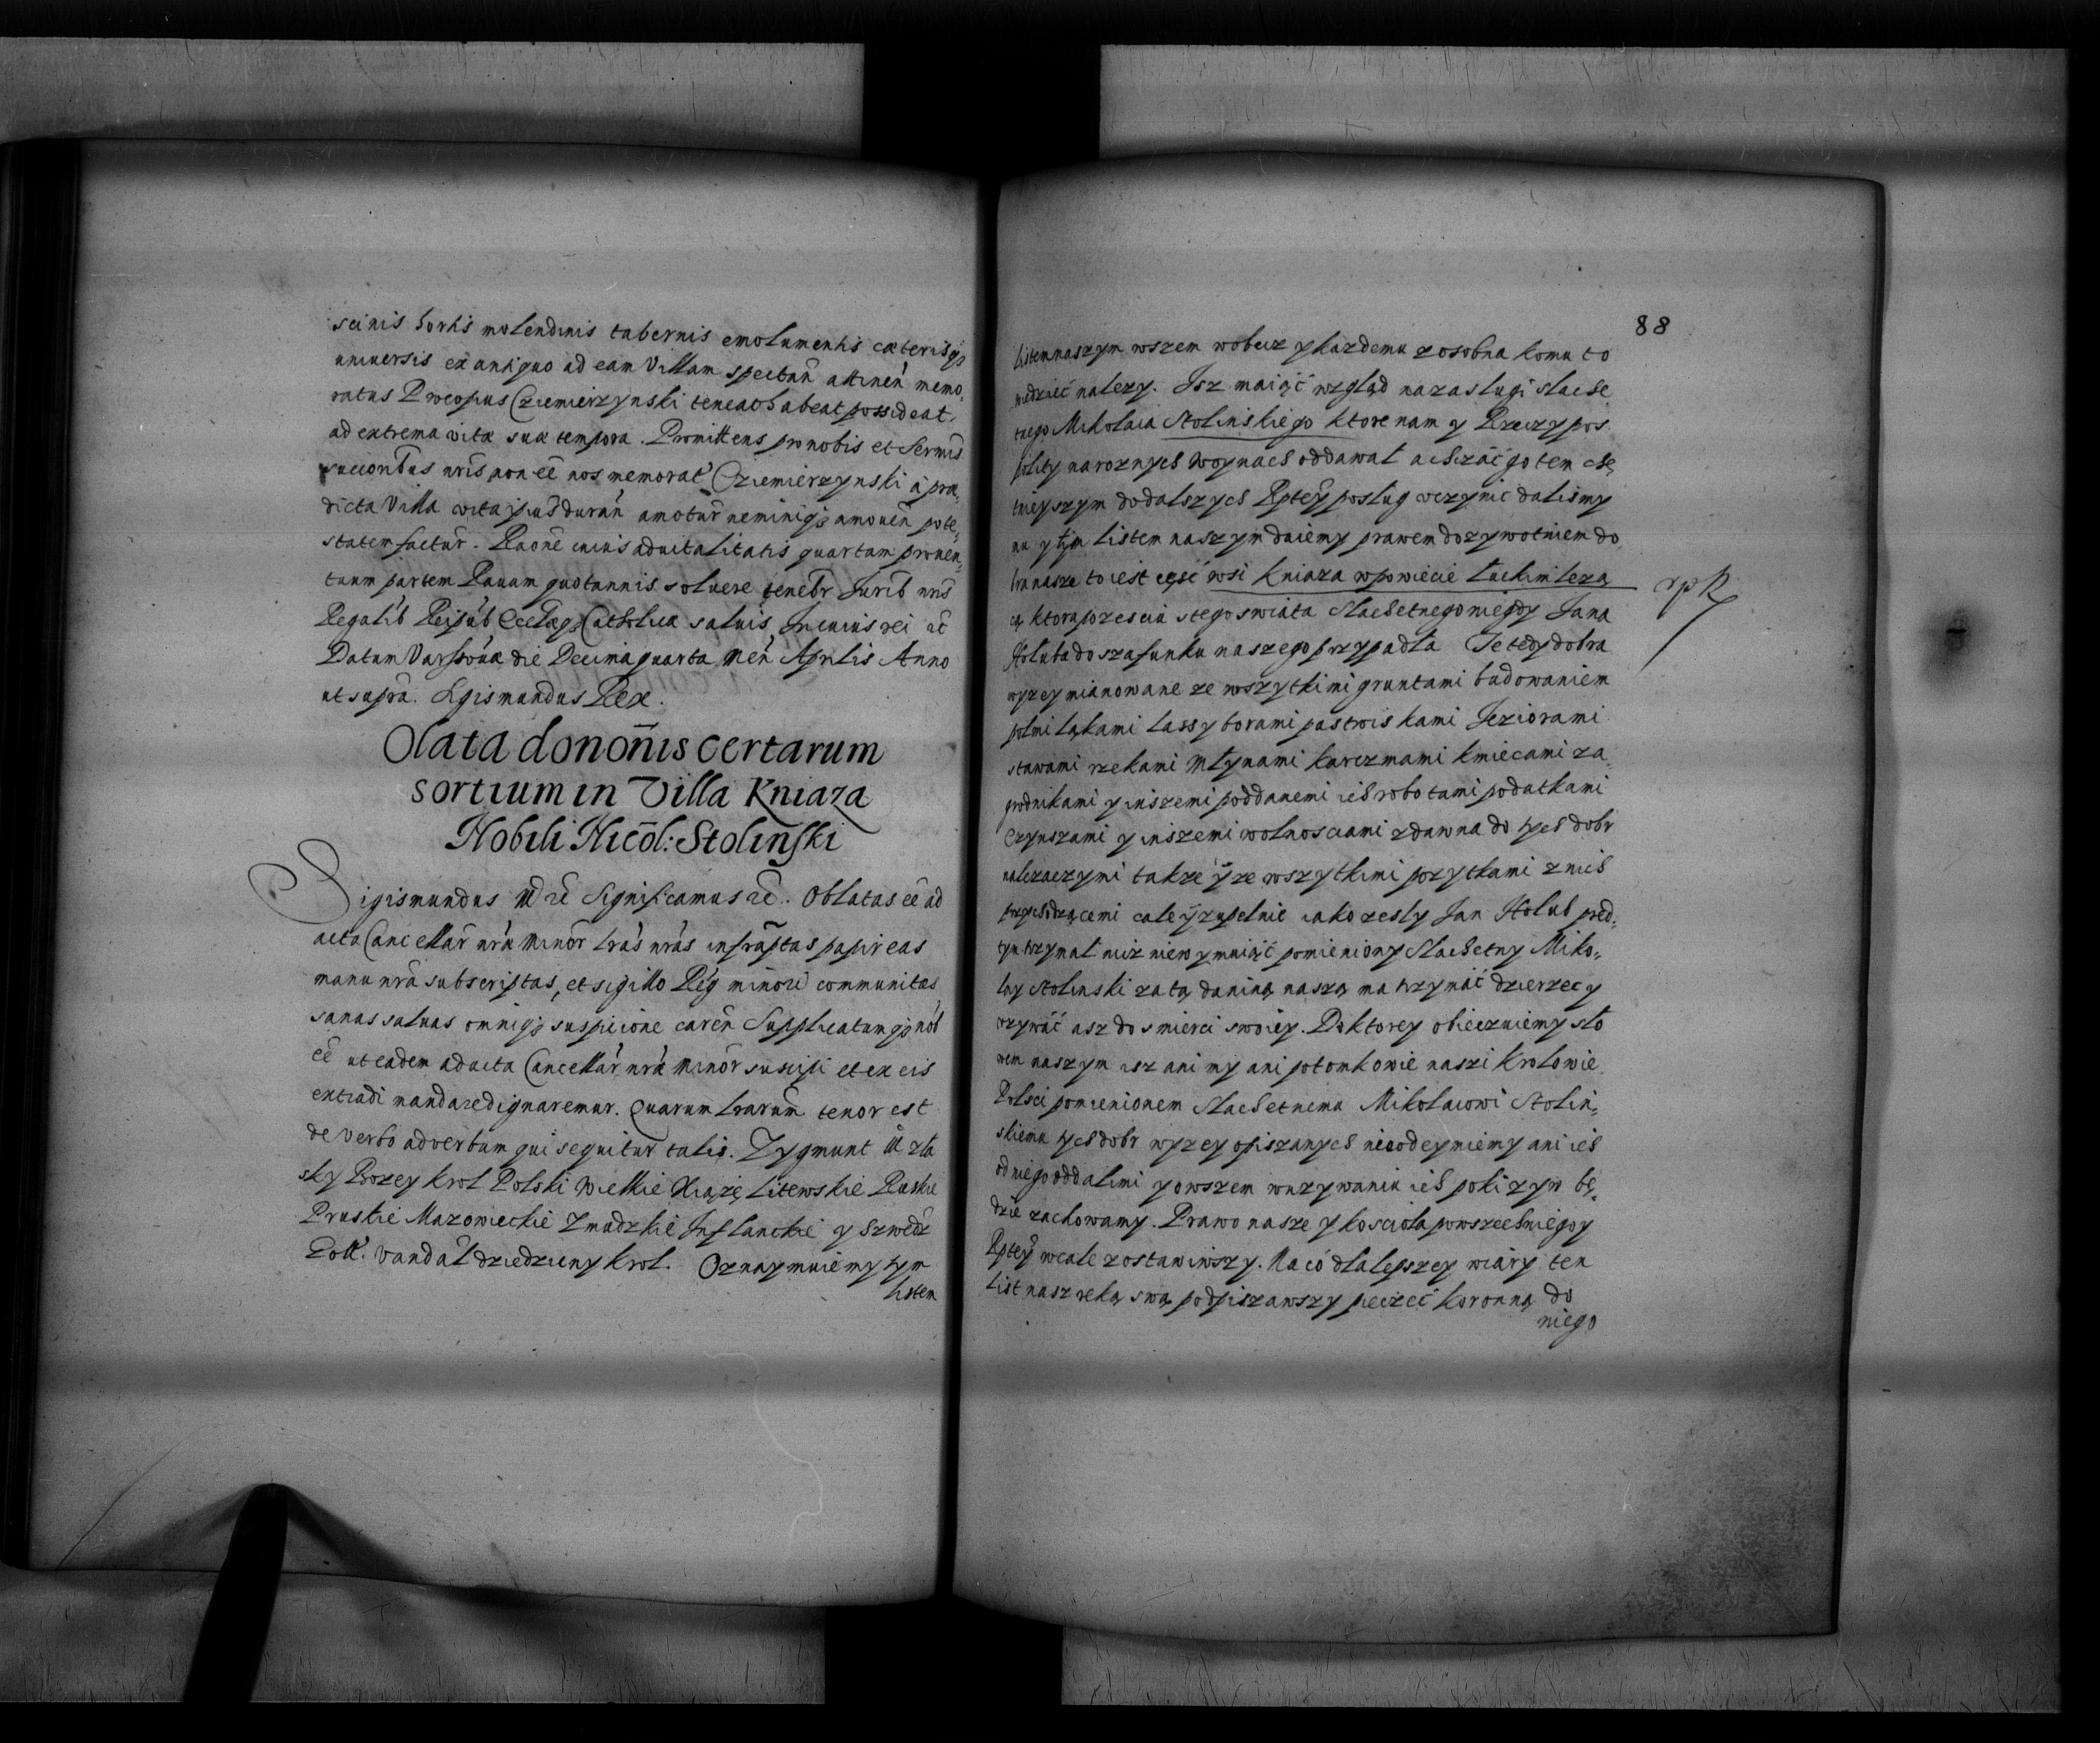 scinis hortis molendinis tabernis emolumentis cæterisq̃
uniuersis ex antiquo ad eam Villam spectan̄ attinen̄ memo,
ratus Procopius Cziemierzynski teneat habeat possideat,
ad extrema vitæ suæ tempora. Promittens pro nobis et Sermīs
succoribus nris non ēe nos memorat̄ Cziemierzynski à præ,
dicta Villa vita ipius̄ durañ amotur̄ neminiq̃ amouen̄ pote,
statem factur̄. Raōne cuius aduitalitatis quartam prouen,
tuum partem Rauam quotannis soluere tenebr̄ Jurib nris
Regalib Reipub Ecclæq̃ Catholicæ saluis, In cuius rei ēt
Datum Varsouiæ die Decima quarta Men̄ Aprilis Anno
ut supra. Sigismundus Rex.
Olata donon̄is certarum
sortium in Villa Kniaza
Nobili Nicol: Stolinski
Sigismundus III rē Significamus rē. Oblatas ēe ad
acta Cancellar̄ nræ Minor̄ lrās nrās infrāptas papireas
manu nrā subscriptas, et sigillo Reg̃ minori communitas
sanas saluas omniq̃ suspicione caren̄ Supplicatumq̃ nob
ēe ut eadem ad acta Cancellar̄ nræ Minor̄ suscipi et ex eis
extradi mandare dignaremur. Quarum lrarum tenor est
de verbo ad verbum qui sequitur talis. Zygmunt III z ła
sky Bozey Krol Polski Wielkie Xiążę Litewskie Ruskie
Pruskie Mazowieckie Zmudzkie Inflanckie y Szwedz
Gott. Vandal dziedziczny Krol. Oznaymuiemy tym
listem
88
listem naszym wszem wobecz y kazdemu zosobna komu to
wiedzieć nalezy. Isz maiąć wzgląd na zaslugi slache
tnego Mikolaia Stolinskiego ktore nam y Rzeczypos
politey na roznych Woynach oddawał a chcząć go tem chę
tnieyszym do dalszych Rptey posług vczynić daliśmy
mu y tym listem naszym daiemy prawem dozywotniem do
bra nasze to iest częsć wsi Kniaza w powiecie
cą ktora po ześciu stego swiata Slachetnego niegdy Jana
Holuba do szafunku naszego przypadła Te tedy dobra
wyzey mianowane ze wszytkimi gruntami budowaniem
polmi łąkami lassy borami pastwiskami Jeziorami
stawami rzekami Młynami karczmami kmieciami za
grodnikami y inszemi poddanemi ich robotami podatkami
Czynszami y inszemi wolnosciami zdawna do tych dobr
nalezaczymi takze y ze wszytkimi pozytkami znich
przychodzącemi cale y zupelnie iako zesly Jan Holub przed,
tym trzymał nicz niewymuiąć pomieniony Slachetny Miko,
lay Stolinski za tą daniną naszą ma trzymać dzierzec y
vzywać asz do smierci swoiey. Do ktorey obiecuiemy sło
wem naszym isz ani my ani potomkowie naszi Krolowie
Polsci pomienionem Slachetnemu Mikolaiowi Stolin,
skiemu tych dobr wyzey opiszanych nieodeymiemy ani ich
od niego oddalimi y owszem w uzywaniu ich poki zyw bę,
dzie zachowamy. Prawo nasze y kosciola powszechniego y
Rptey wcale zostawiwszy. Na co dla lepszey wiary ten
list nasz ręką swą podpiszawszy pieczeć koronną do
niego